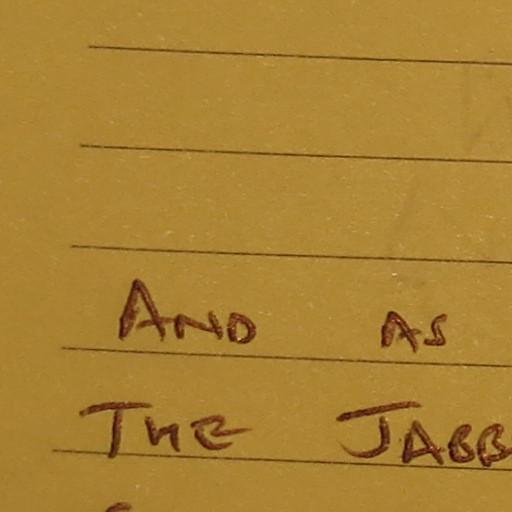 AND AS
THE JABB